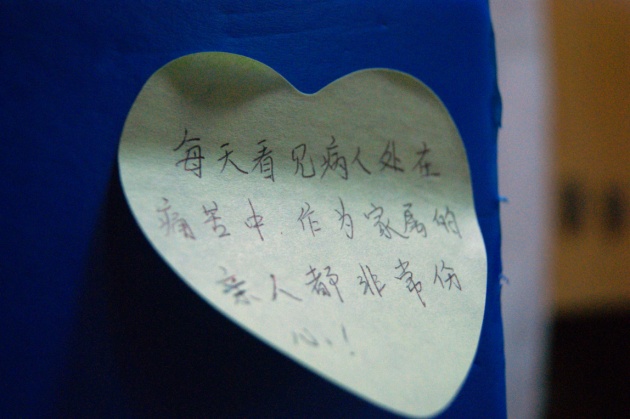 每天看见病人处在
痛苦中.作为家属的
亲人都非常伤
心!